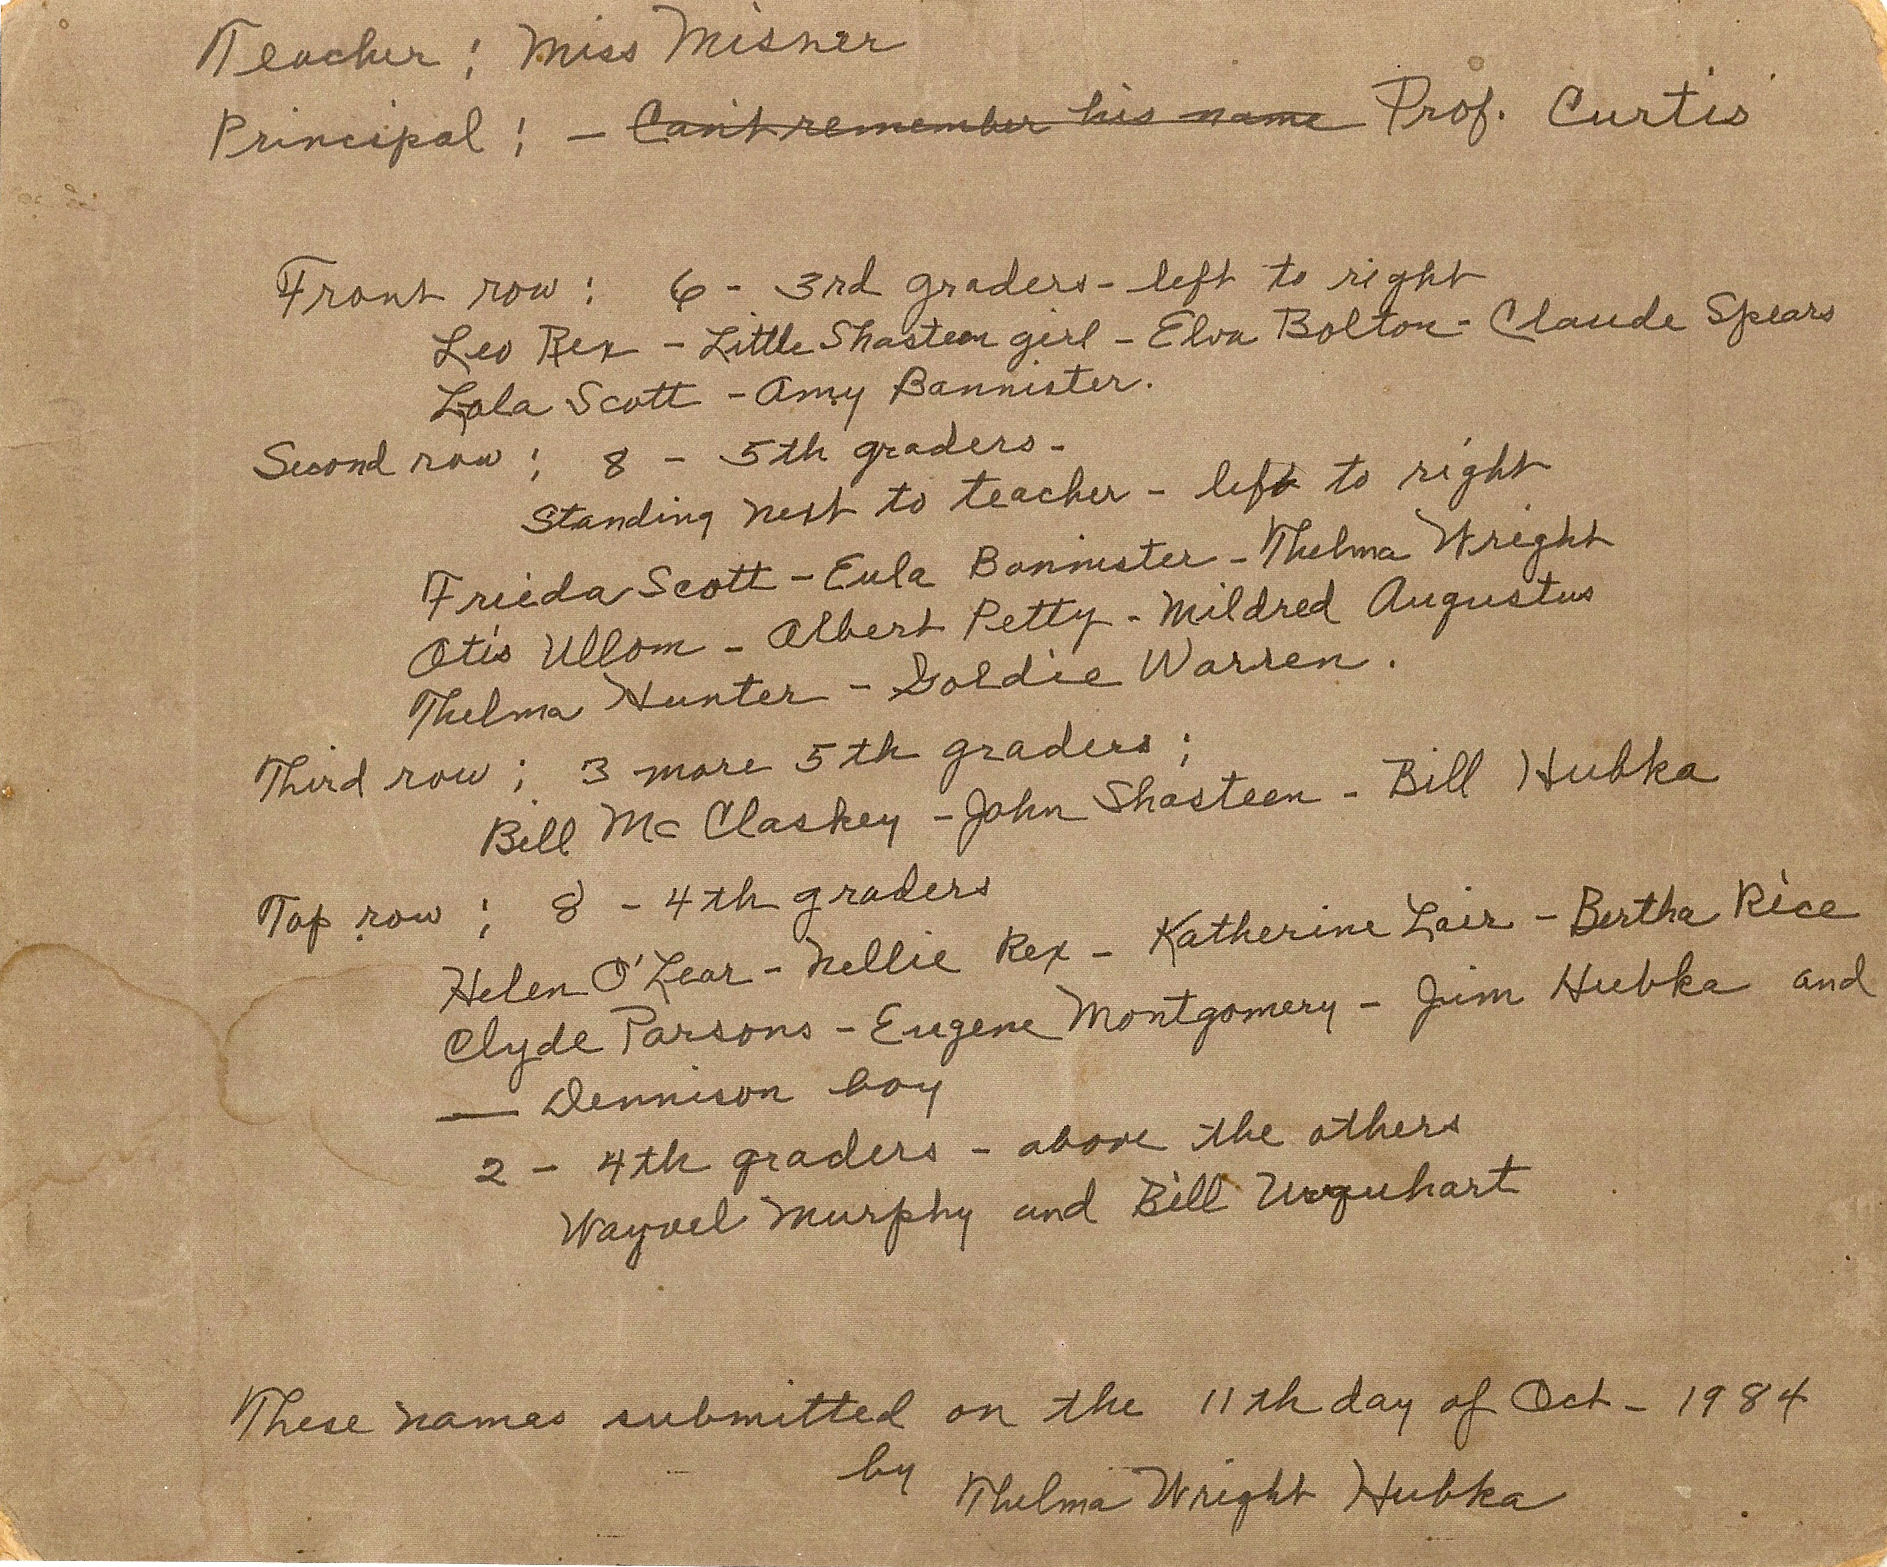 Teacher: Miss Misner
Principal: - ~~Can't remember his name~~ Prof. Curtis
Front row: 6 - 3rd graders - left to right
Leo Rex - Little Shasteen girl - Elva Bolton - Claude Spears
Lola Scott - Amy Bannister.
Second row: 8 - 5th graders -
Standing next to teacher - left to right
Frieda Scott - Eula Bannister - Thelma Wright
Otis Ullom - Albert Petty - Mildred Augustus
Thelma Hunter - Goldie Warren.
Third row; 3 more 5th graders;
Bill McClaskey - John Shasteen - Bill Hubka
Top row; 8 - 4th graders
Helen O'Lear - Nellie Rex - Katherine Lair - Bertha Rice
Clyde Parsons - Eugene Montgomery - Jim Hubka and
___ Dennison boy
2 - 4th graders - above the others
Wayvel Murphy and Bill Urquhart
These names submitted on the 11th day of Oct - 1984
by Thelma Wright Hubka